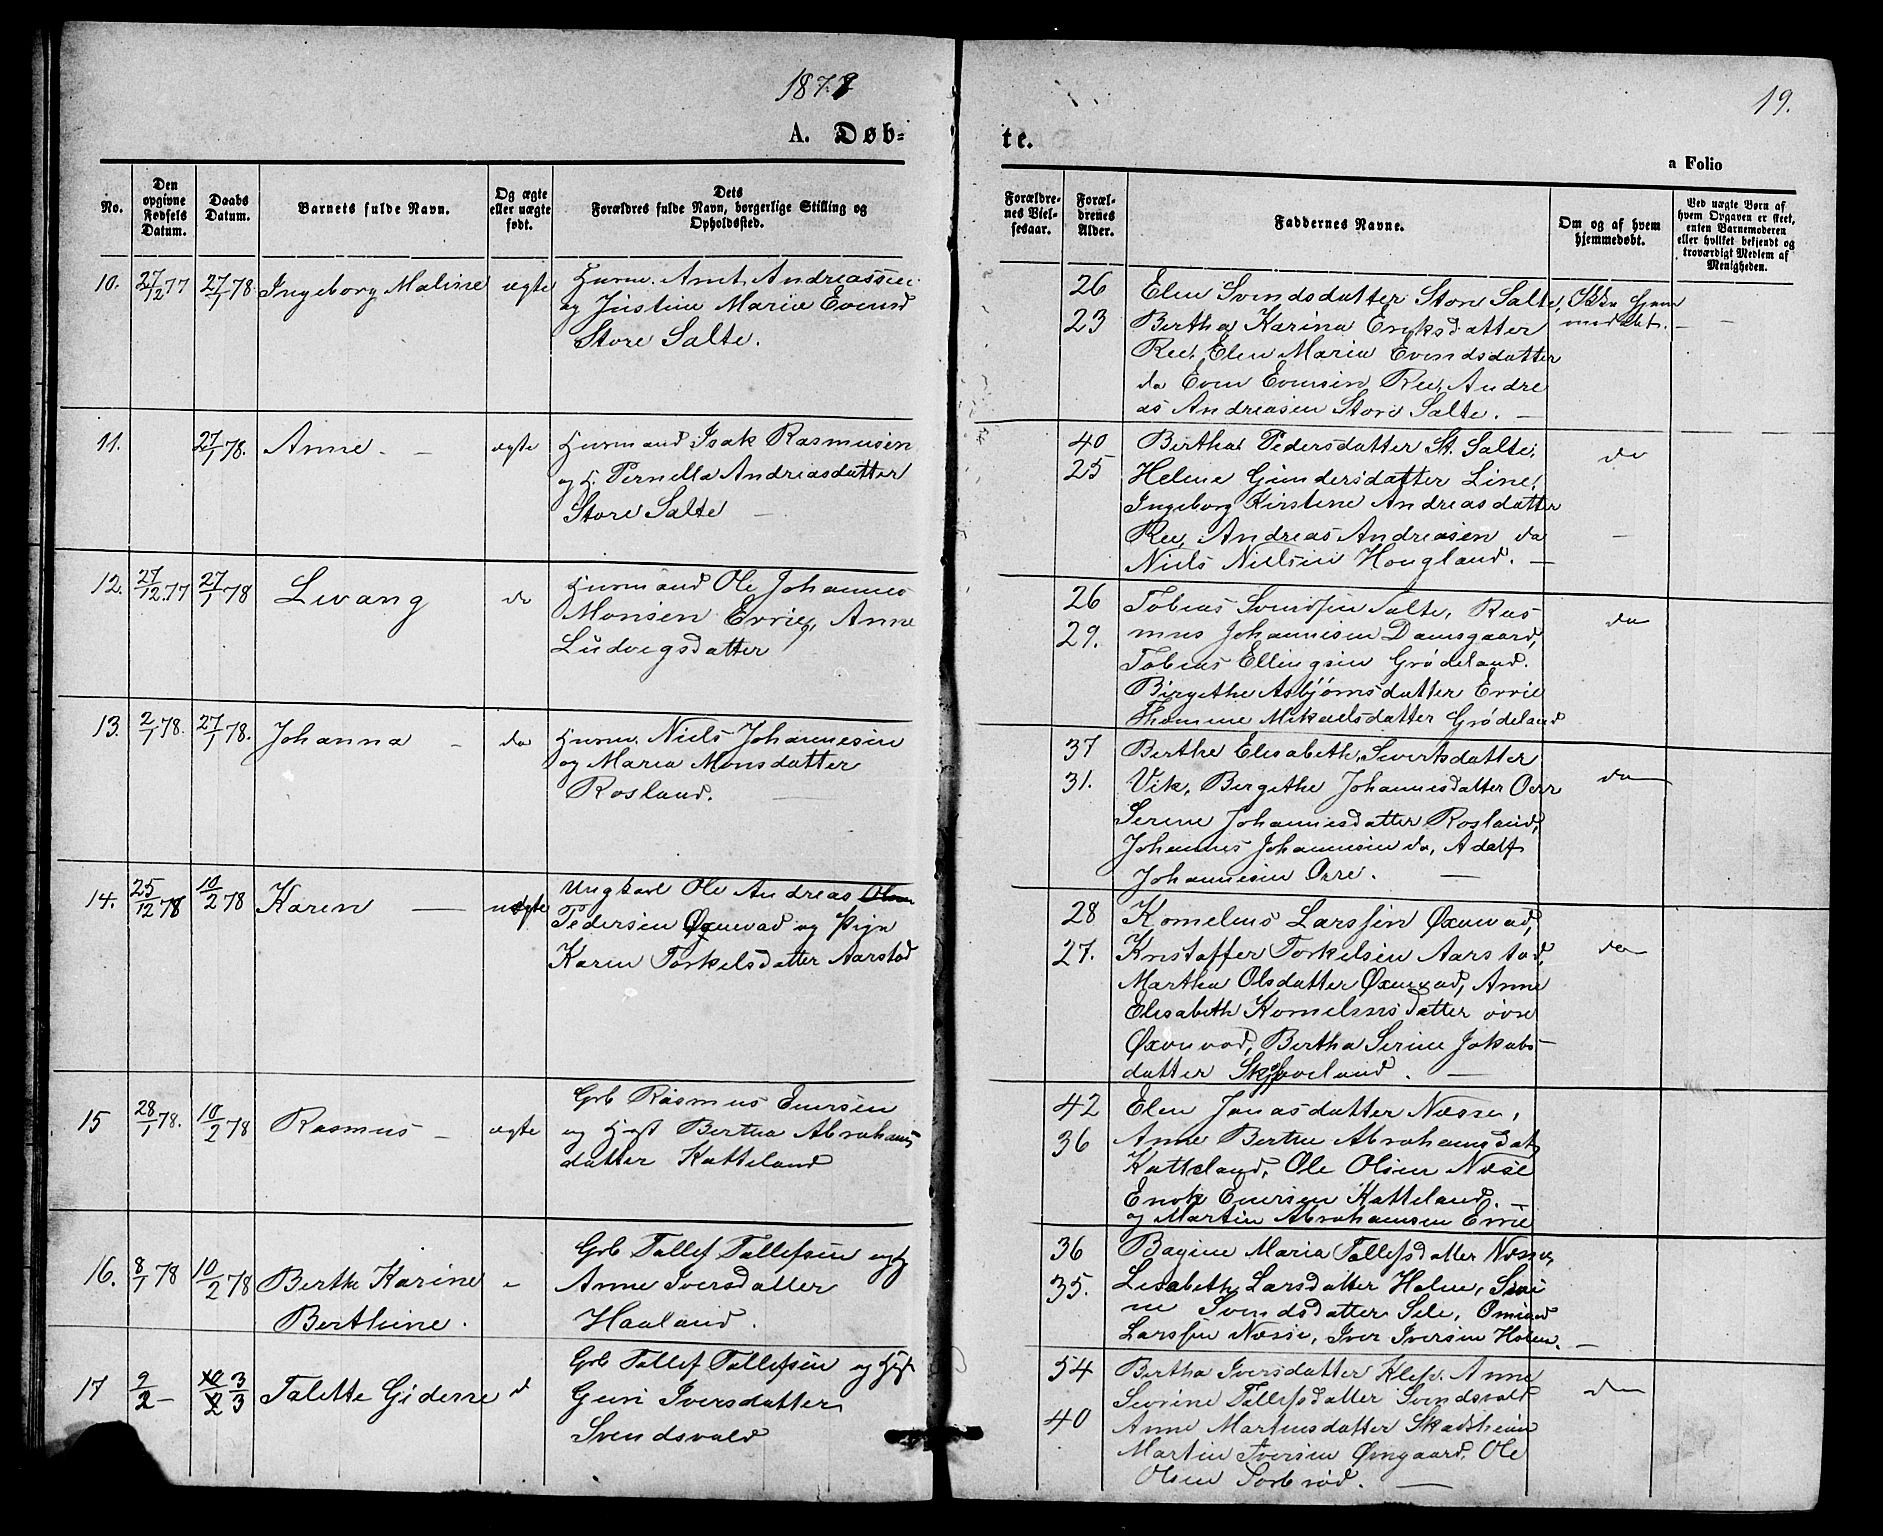 1878
19.
A. Døb-
te.
a Folio
No.
Den opgivne Fødsels Datum.
Daabs Datum.
Barnets fulde Navn.
Og ægte eller uægte født.
Dets Forældres fulde Navn, borgerlige Stilling og Opholdssted.
Forældrenes Vielsesaar.
Forældrenes Alder.
Faddernes Navne.
Om og af hvem hjemmedøbt.
Ved uægte Børn af hvem Opgaven er skeet, enten Barnemoderen eller hvilket bekjendt og troværdigt Medlem af Menigheden.
10. 27/12 77 27/1 78. Ingeborg Maline ægte
Huusm. Arnt Andreassen
og Justine Maria Evend
Store Salte.
26
23
Elen Svendsdatter Store Salte,
Bertha Karina Eriksdatter
Ree, Elen Maria Evendsdatter
do Even Evensen Ree, Andre
as Andreasen Store Salte. —
Ikke hjem
medøbt. —
11. 27/1 78. Anne — ægte
Huusmand Isak Rasmusen
og H. Pernella Andreasdatter
Store Salte —
40
25
Bertha Pedersdatter St. Salte,
Helene Gundersdatter Line,
Ingeborg Kirstine Andreasdatter
Ree, Andreas Andreasen do
Niels Nielsen Hougland. —
do
12. 27/12 77 27/1 78 Levang do
Huusmand Ole Johannes
Monsen Errie, Anne
Ludvigsdatter
26
29.
Tobias Svendsen Salte, Ras
mus Johannesen Damsgaard,
Tobias Ellingsen Grødeland.
Birgethe Asbjørnsdatter Errie
Thomine Mikaelsdatter Grødeland
do
13. 2/1 78. 27/1 78. Johanna — do
Huusm. Niels Johannesen
og Maria Monsdatter
Rosland. —
37
31.
Berthe Elisabeth Sivertsdatter
Vik, Bergithe Johannesdatter Orre
Serine Johannesdatter Rosland,
Johannes Johannesen do, Adolf
Johannesen Orre. —
do
14. 25/12 78 10/2 78 Karen — uægte
Ungkarl Ole Andreas Olsen
Pedersen Øxnevad og Pige
Karen Torkelsdatter Aarstad
28
27.
Kornelius Larssen Øxnevad,
Kristoffer Torkelsen Aarstad,
Martha Olsdatter Øxnevad, Anne
Elisabeth Korneliusdatter øvre
Øxnevad, Bertha Serine Jakobs-
datter Skjæveland. —
do
15 28/1 78. 10/2 78 Rasmus — ægte
Grb Rasmus Enersen
og Hust Bertha Abrahams
datter Katteland
42
36
Elen Jonasdatter Næsse,
Anne Berthe Abrahamsdat
Katteland, Ole Olsen Næse
Enok Enersen Katteland. —
og Martin Abrahamsen Errie
16. 8/1 78 10/2 78 Berthe Karine
Berthine.
Grb Tollef Tollefsen og
Anne Iversdatter
Haaland.
36
35.
Bagine Maria Tollefsdatter Næsse,
Lisabeth Larsdatter Holen, Seri
ne Svendsdatter Sele, Omund
Larssen Næsse, Iver Iversen Holen. —
17 9/2 — 10/2 3/3 Talette Giderne d
Grb Tollef Tollefsen og Hst
Guri Iversdatter
Svendsvold
54
40
Bertha Iversdatter Klep. Anne
Severine Tollefsdatter Svendsvold
Anne Martinsdatter Skadsheim
Martin Iversen Ømgaard, Ole
Olsen Sorbrød. —
do